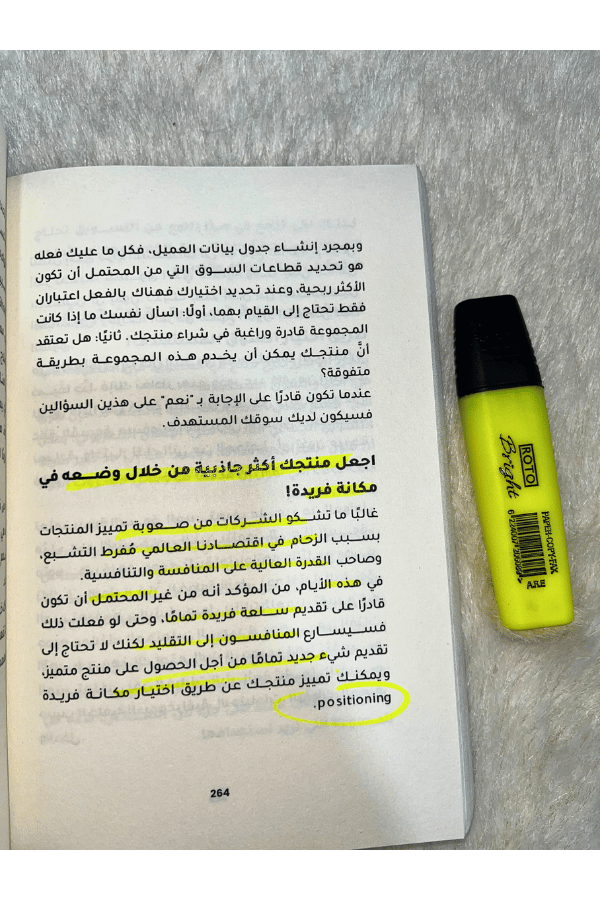 وبمجرد إنشاء جدول بيانات العميل، فكل ما عليك فعله
هو تحديد قطاعات السوق التي من المحتمل أن تكون
الأكثر ربحية، وعند تحديد اختيارك فهناك بالفعل اعتباران
فقط تحتاج إلى القيام بهما، أولًا: اسأل نفسك ما إذا كانت
المجموعة قادرة وراغبة في شراء منتجك. ثانيًا: هل تعتقد
أنَّ منتجك يمكن أن يخدم هذه المجموعة بطريقة
متفوقة؟
عندما تكون قادرًا على الإجابة بـ "نعم" على هذين السؤالين
فسيكون لديك سوقك المستهدف.
اجعل منتجك أكثر جاذبية من خلال وضعه في
مكانة فريدة!
غالبًا ما تشكو الشركات من صعوبة تمييز المنتجات
بسبب الزحام في اقتصادنا العالمي مُفرط التشبع،
وصاحب القدرة العالية على المنافسة والتنافسية.
في هذه الأيام، من المؤكد أنه من غير المحتمل أن تكون
قادرًا على تقديم سلعة فريدة تمامًا، وحتى لو فعلت ذلك
فسيسارع المنافسون إلى التقليد لكنك لا تحتاج إلى
تقديم شيء جديد تمامًا من أجل الحصول على منتج متميز،
ويمكنك تمييز منتجك عن طريق اختيار مكانة فريدة
positioning.
264
ROTO
Bright
PAPER-COPY-FAX
ARE